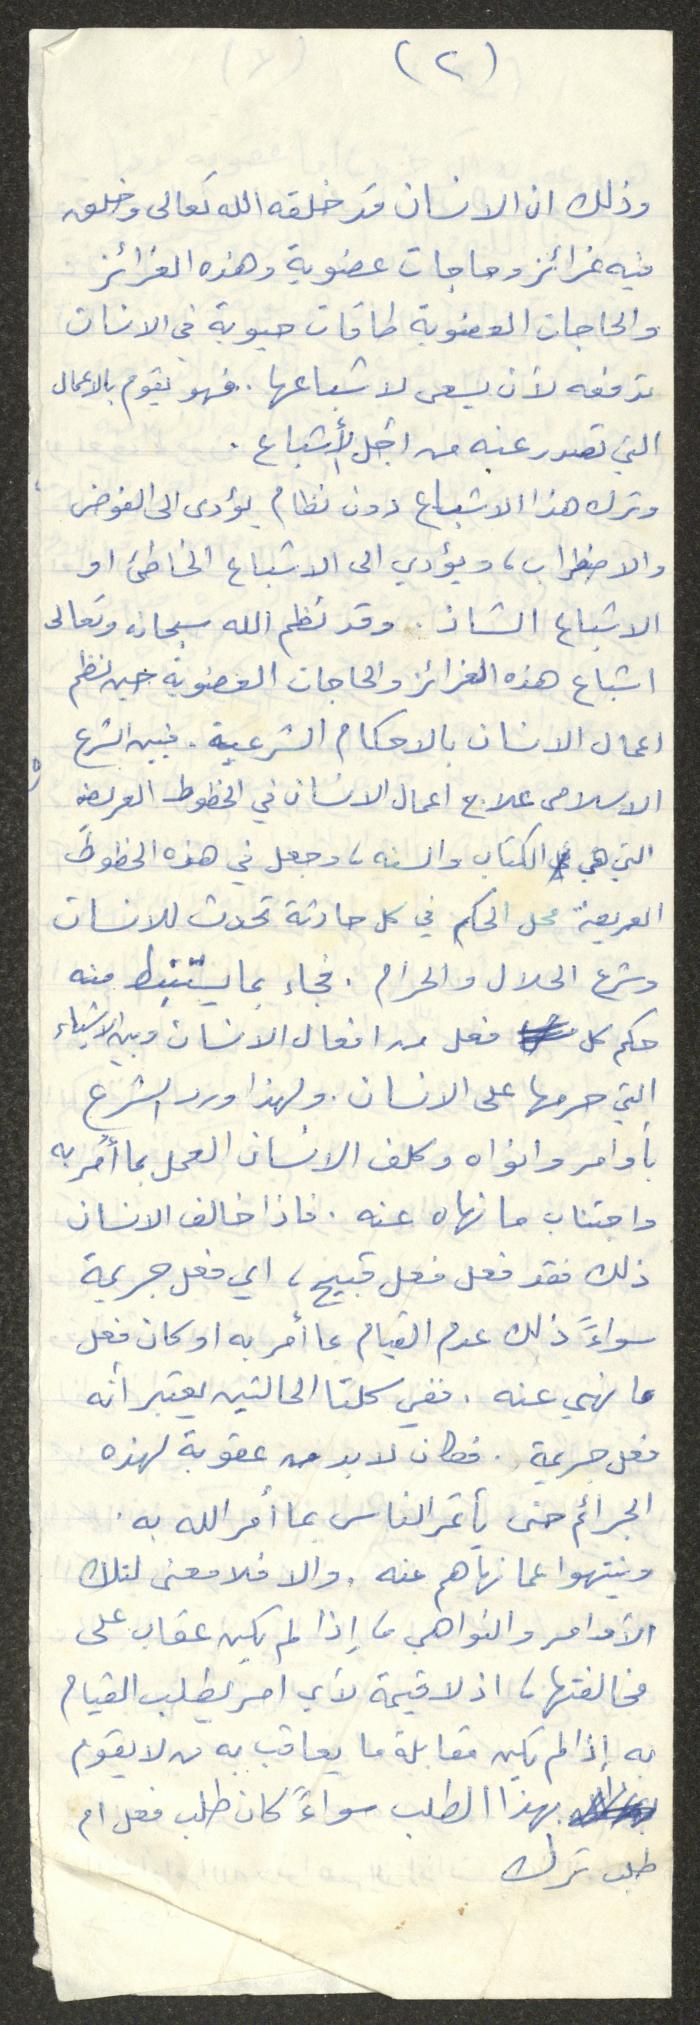 (٢)
وذلك ان الانسان قد خلقه الله تعالى وخلق
فيه غرائز وحاجات عضوية وهذه الغرائز
والحاجات العضوية طاقات حيوية في الانسان
تدفعه لأن يسعى لاشباعها. فهو يقوم بالاعمال
التي تصدر عنه من اجل الأشباع .
وترك هذا الاشباع دون نظام يؤدى الى الفوضى
والاضطراب، ويؤدي الى الاشباع الخاطئ او
الاشباع الشاذ . وقد نظم الله سبحانه وتعالى
اشباع هذه الغرائز والحاجات العضوية حين نظم
اعمال الانسان بالاحكام الشرعية . فبين الشرع
الاسلامى علاج اعمال الانسان في الخطوط العريضه
التي هي الكتاب والسنه، وجعل في هذه الخطوط
العريضة محل الحكم في كل حادثة تحدث للانسان
وشرع الحلال والحرام . فجاء بما يستنبط منه
حكم كل فعل من افعال الانسان وبين الاشياء
التي حرمها على الانسان . ولهذا ورد الشرع
بأوامر وانواه وكلف الانسان العمل بما أمر به
واجتناب ما نهاه عنه . فاذا خالف الانسان
ذلك فقد فعل فعل قبيح، اي فعل جريمة
سواءً ذلك عدم القيام بما أمر به او كان فعل
ما نهي عنه . ففي كلتا الحالتين يعتبر أنه
فعل جريمة . فكان لابد من عقوبة لهذه
الجرائم حتى يأتمر الناس بما أمر الله به .
وينتهوا عما نهاهم عنه . والا فلا معنى لتلك
الأوامر والنواهي، إذا لم يكن عقاب على
مخالفتها، اذ لا قيمة لأي امر يطلب القيام
به إذا لم يكن مقابلة ما يعاقب به من لا يقوم
بهذا الطلب سواءً كان طلب فعل ام
طلب ترك